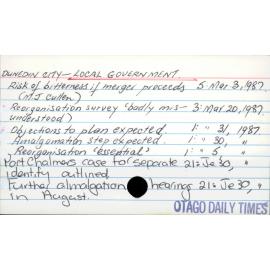 DUNEDIN CITY - LOCAL GOVERNMENT
Risk of bitterness if merger proceeds 5: Mar 3, 1987
(M J Cullen)
Reorganisation survey 'badly mis- 3: Mar 20, 1987
understood)
Objections to plan expected 1: " 31, 1987
Amalgamation step expected. 1: " 30, "
Reorganisation 'essential' 1: " 5, "
Port Chalmers case for separate 21: Je 30, "
identity outlined
Further almalgation hearings 21: Je 30, "
in August.
OTAGO DAILY TIMES